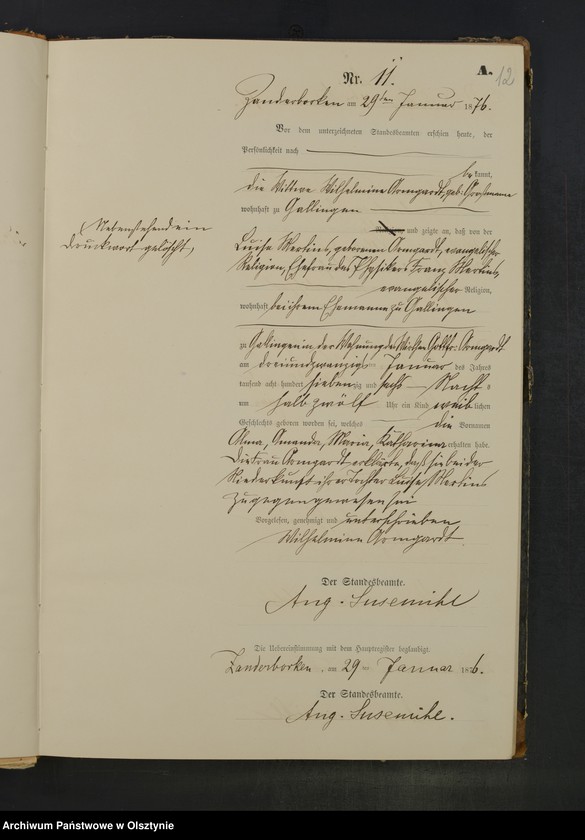 A.
12
Nr. 11.
Zanderborken am 29ten Januar 1876.
Vor dem unterzeichneten Standesbeamten erschien heute, der
Persönlichkeit nach
bekannt,
die Wilhelmine Armgardt, geb. Grossmann
wohnhaft zu Gallingen
und zeigte an, daß von der
Luise Mertins, geborenen Armgardt, evangelischer
Religion, Ehefrau des Franz Mertins,
evangelischer Religion,
wohnhaft bei ihrem Ehemanne zu Gallingen
Nebenstehend ein
Druckwort gelöscht
zu Gallingen in der Wohnung des Gottfr. Armgardt
am dreiundzwanzigsten Januar des Jahres
tausend acht hundert siebenzig und sechs Nachts
um halb zwölf Uhr ein Kind weiblichen
Geschlechts geboren worden sei, welches die Vornamen
Alma, Amanda, Maria, Katharina erhalten habe.
Die Frau Armgardt erklärte, daß sie bei der
Niederkunft ihrer Tochter Luise Mertins
zugegen gewesen sei
Vorgelesen, genehmigt und unterschrieben
Wilhelmine Armgardt.
Der Standesbeamte.
Aug. Susemihl
Die Uebereinstimmung mit dem Hauptregister beglaubigt.
Zanderborken, am 29 Januar 1876.
Der Standesbeamte.
Aug. Susemihl.
Archiwum Państwowe w Olsztynie